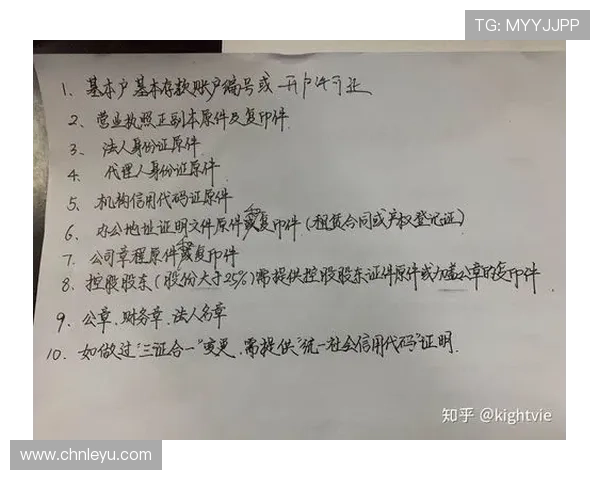 TG: MYYJJPP
1、基本户基本存款账户编号或开户许可证
2、营业执照正副本原件及复印件
3、法人身份证原件
4、代理人身份证原件
5、机构信用代码证原件
6、办公地址证明文件原件和复印件(租赁合同或产权登记证)
7、公司章程原件和复印件
8、控股股东(股份大于25%)需提供控股股东证件原件或加盖公章的复印件
9、公章、财务章、法人名章
10、如做过"三证合一"变更,需提供"统一社会信用代码"证明.
知乎 @kightvie
www.chnleyu.com